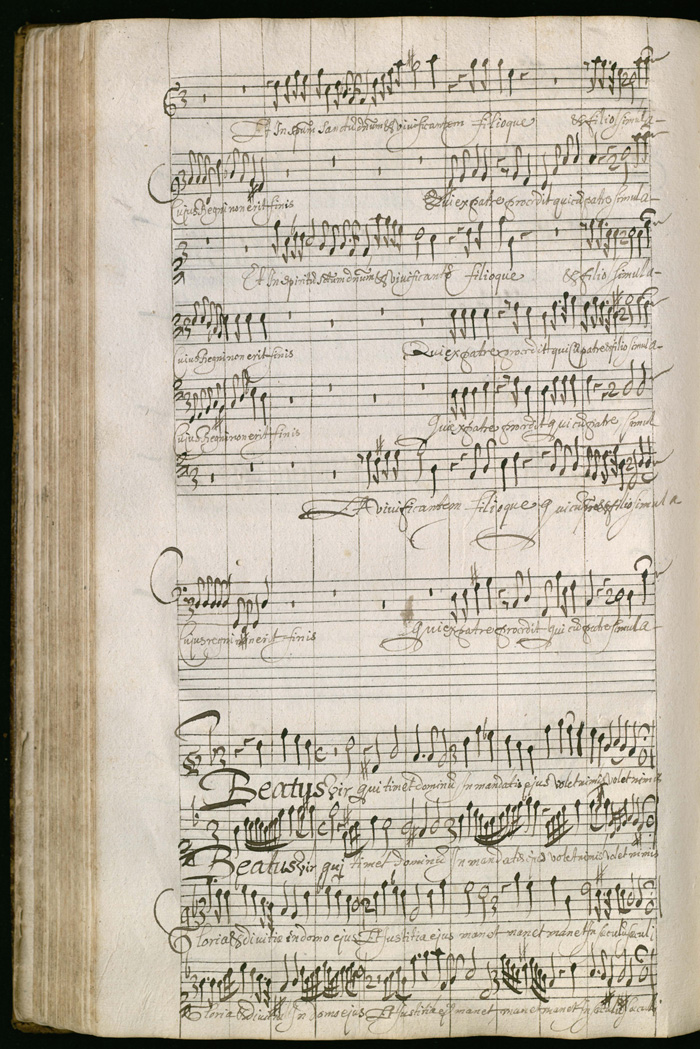 Et In spūm Sanctū dnūm & vivificantem filioque & filio simula-
Cujus Regni non erit finis Qui ex patre procedit qui cū patre simula-
Et In spiritū sctum dnūm & vivificantē filioque & filio simula-
uius Regni non erit finis Qui ex patre procedit qui cū patre & filio simula-
Cujus Regni non erit finis Qui ex patre procedit qui cū patre simul
Et vivificantem filioque q ui cū & filio simul a
Cujus regni non erit finis qui ex patre procedit qui cū patre simula-
Beatus vir qui timet dominū In mandatis ejus volet nimis volet nimis
Beatus vir qui timet dominū In mandatis volet nimis volet nimis
Gloria & divitiæ in domo ejus Et Justitia ejus manet manet manet In sæculū sæculi
Gloria & In domo ejus Et Justitia manet manet manet In sæculū sæculi